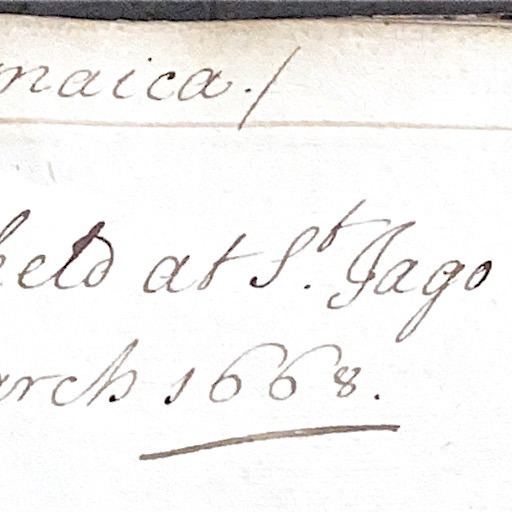 maica./
held at S.t Jago
arch 1668.